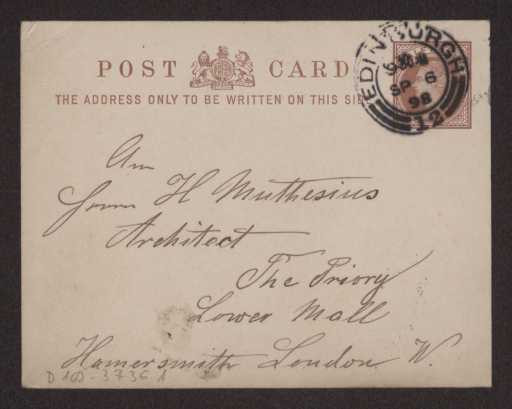 POST CARD
THE ADDRESS ONLY TO BE WRITTEN ON THIS
EDINBURGH
SP 6
98
12
H Muthesius
Architect
The Priory
Lower Mall
Hamersmith London W.